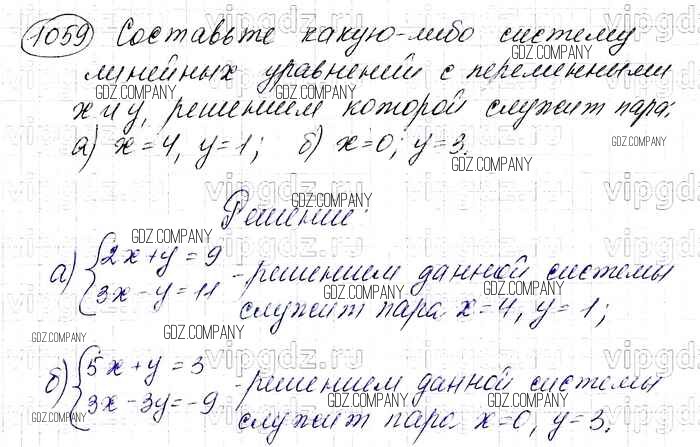 1059 Составьте какую-либо систему
GDZ.COMPANY
линейных уравнений с переменными
GDZ.COMPANY GDZ.COMPANY GDZ.COMPANY
x и y, решением которой служит пара:
GDZ.COMPANY
а) x=4, y=1; б) x=0; y=3.
GDZ.COMPANY
vipgdz.ru vipgdz.ru vipgdz.ru
GDZ.COMPANY
Решение:
GDZ.COMPANY
а) { 2x+y=9
3x-y=11 - решением данной системы
GDZ.COMPANY GDZ.COMPANY
служит пара x=4, y=1;
GDZ.COMPANY GDZ.COMPANY GDZ.COMPANY
б) { 5x+y=3
3x-3y=-9 - решением данной системы
GDZ.COMPANY GDZ.COMPANY
служит пара x=0, y=3.
GDZ.COMPANY GDZ.COMPANY